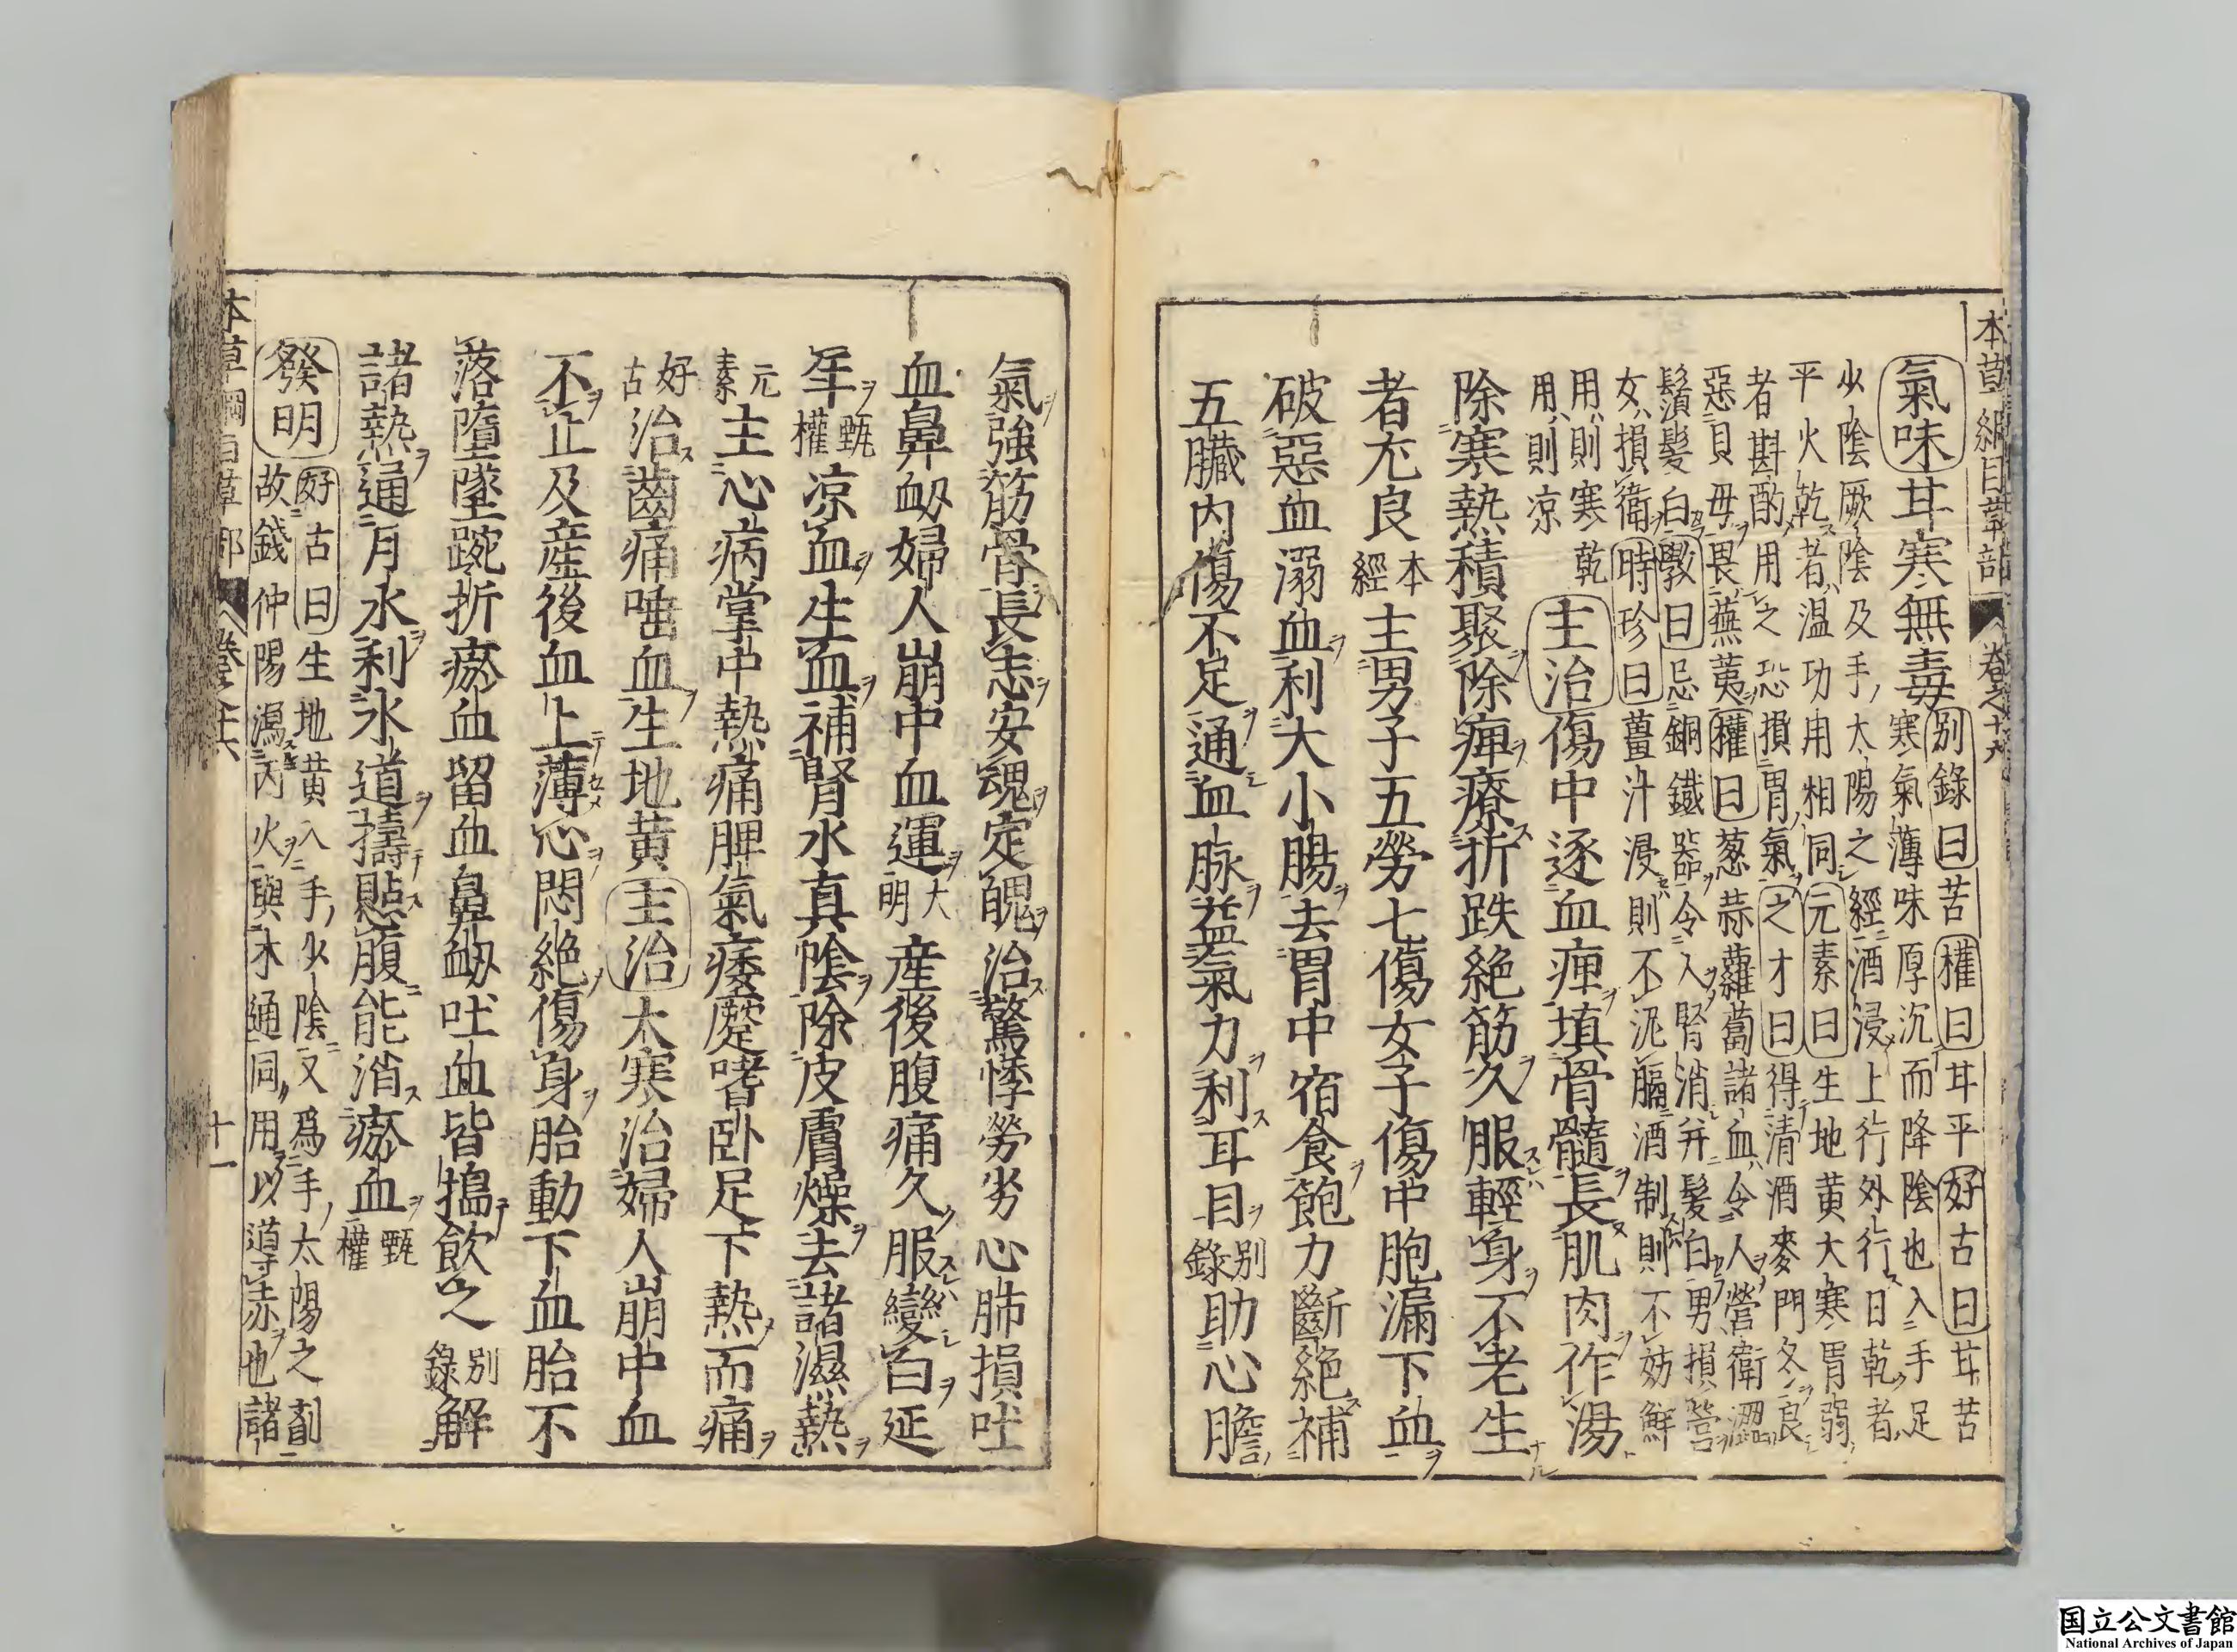 本草綱目草部 卷之十六
氣味 甘寒無毒 別錄曰苦權曰甘平好古曰甘苦
寒氣薄味厚沉而降陰也入手足
少陰厥陰及手太陽之經酒浸上行外行日乾者
平火乾者温功用相同元素曰生地黄大寒胃弱
者斟酌用之恐損胃氣之才曰得清酒麥門冬良
惡貝母畏蕪荑權曰葱蒜蘿蔔諸血令人營衛澀
鬚髮白斆曰忌銅鐵器令入腎消并髮白男損營
女損衛時珍曰薑汁浸則不泥膈酒制則不妨鮮
用則寒乾
用則凉 主治 傷中逐血痺填骨髓長肌肉作湯
除寒熱積聚除痺療折跌絶筋久服輕身不老生
者尤良 本經 主男子五勞七傷女子傷中胞漏下血
破惡血溺血利大小腸去胃中宿食飽力斷絶補
五臟内傷不足通血脉益氣力利耳目 別錄 助心膽
氣強筋骨長志安魂定魄治驚悸勞劣心肺損吐
血鼻衂婦人崩中血運 大明 産後腹痛久服變白延
年 甄權 凉血生血補腎水真陰除皮膚燥去諸濕熱
元素 主心病掌中熱痛脾氣痿蹷嗜卧足下熱而痛
好古 治齒痛唾血生地黄 主治 大寒治婦人崩中血
不止及産後血上薄心悶絶傷身胎動下血胎不
落墮墜踠折瘀血留血鼻衂吐血皆搗飲之 別錄 解
諸熱通月水利水道擣貼腹能消瘀血 甄權
發明 好古曰生地黄入手少陰又爲手太陽之劑
故錢仲陽瀉丙火與木通同用以導赤也諸
本草綱目草部 卷之十六 十一
国立公文書館
National Archives of Japan